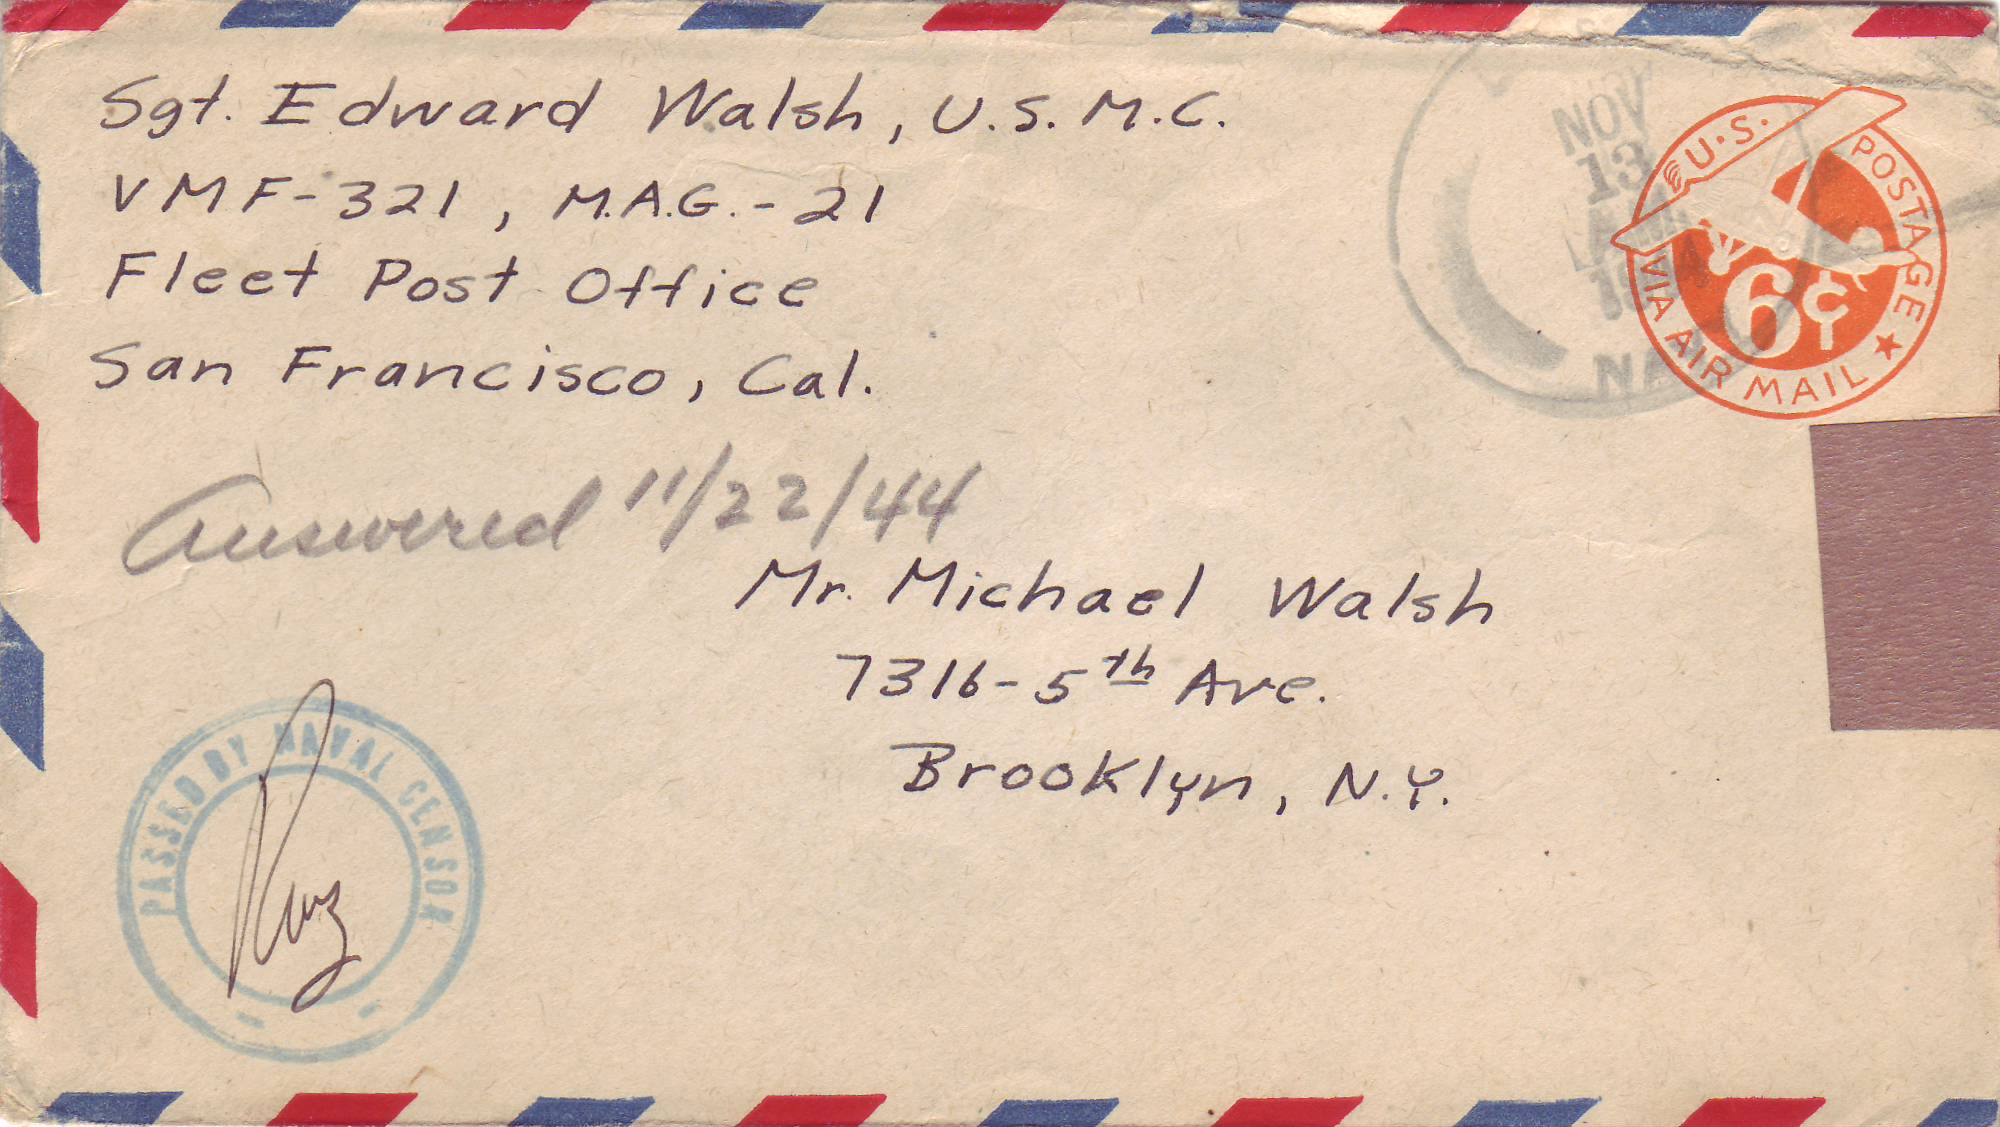 Sgt. Edward Walsh, U.S.M.C.
VMF-321, M.A.G.-21
Fleet Post Office
San Francisco, Cal.
NOV
13
U.S. POSTAGE
6¢
VIA AIR MAIL
Answered 11/22/44
Mr. Michael Walsh
7316-5th Ave.
Brooklyn, N.Y.
PASSED BY NAVAL CENSOR